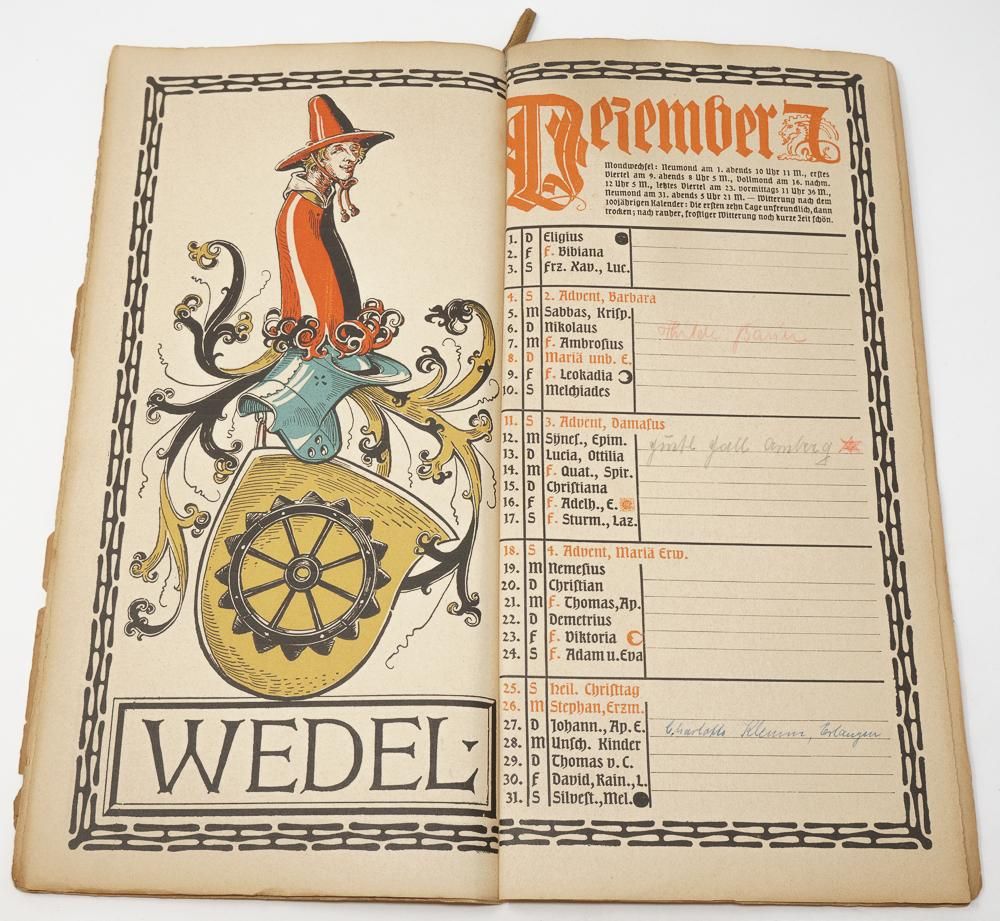 WEDEL·
Dezember
Mondwechsel: Neumond am 1. abends 10 Uhr 11 M., erstes
Viertel am 9. abends 8 Uhr 5 M., Vollmond am 16. nachm.
12 Uhr 5 M., letztes Viertel am 23. vormittags 11 Uhr 36 M.,
Neumond am 31. abends 5 Uhr 21 M. — Witterung nach dem
100jährigen Kalender: Die ersten zehn Tage unfreundlich, dann
trocken; nach rauher, frostiger Witterung noch kurze Zeit schön.
1. D Eligius
2. F F. Bibiana
3. S Frz. Xav., Luc.
4. S 2. Advent, Barbara
5. M Sabbas, Krisp.
6. D Nikolaus
7. M F. Ambrosius
8. D Mariä unb. E.
9. F F. Leokadia
10. S Melchiades
11. S 3. Advent, Damasus
12. M Synes., Epim.
13. D Lucia, Ottilia
14. M F. Quat., Spir.
15. D Christiana
16. F F. Adelh., E.
17. S F. Sturm., Laz.
18. S 4. Advent, Mariä Erw.
19. M Nemesius
20. D Christian
21. M F. Thomas, Ap.
22. D Demetrius
23. F F. Viktoria
24. S F. Adam u. Eva
25. S Heil. Christtag
26. M Stephan, Erzm.
27. D Johann., Ap. E.
Charlotte Klemm, Erlangen
28. M Unsch. Kinder
29. D Thomas v. C.
30. F David, Rain., L.
31. S Silvest., Mel.